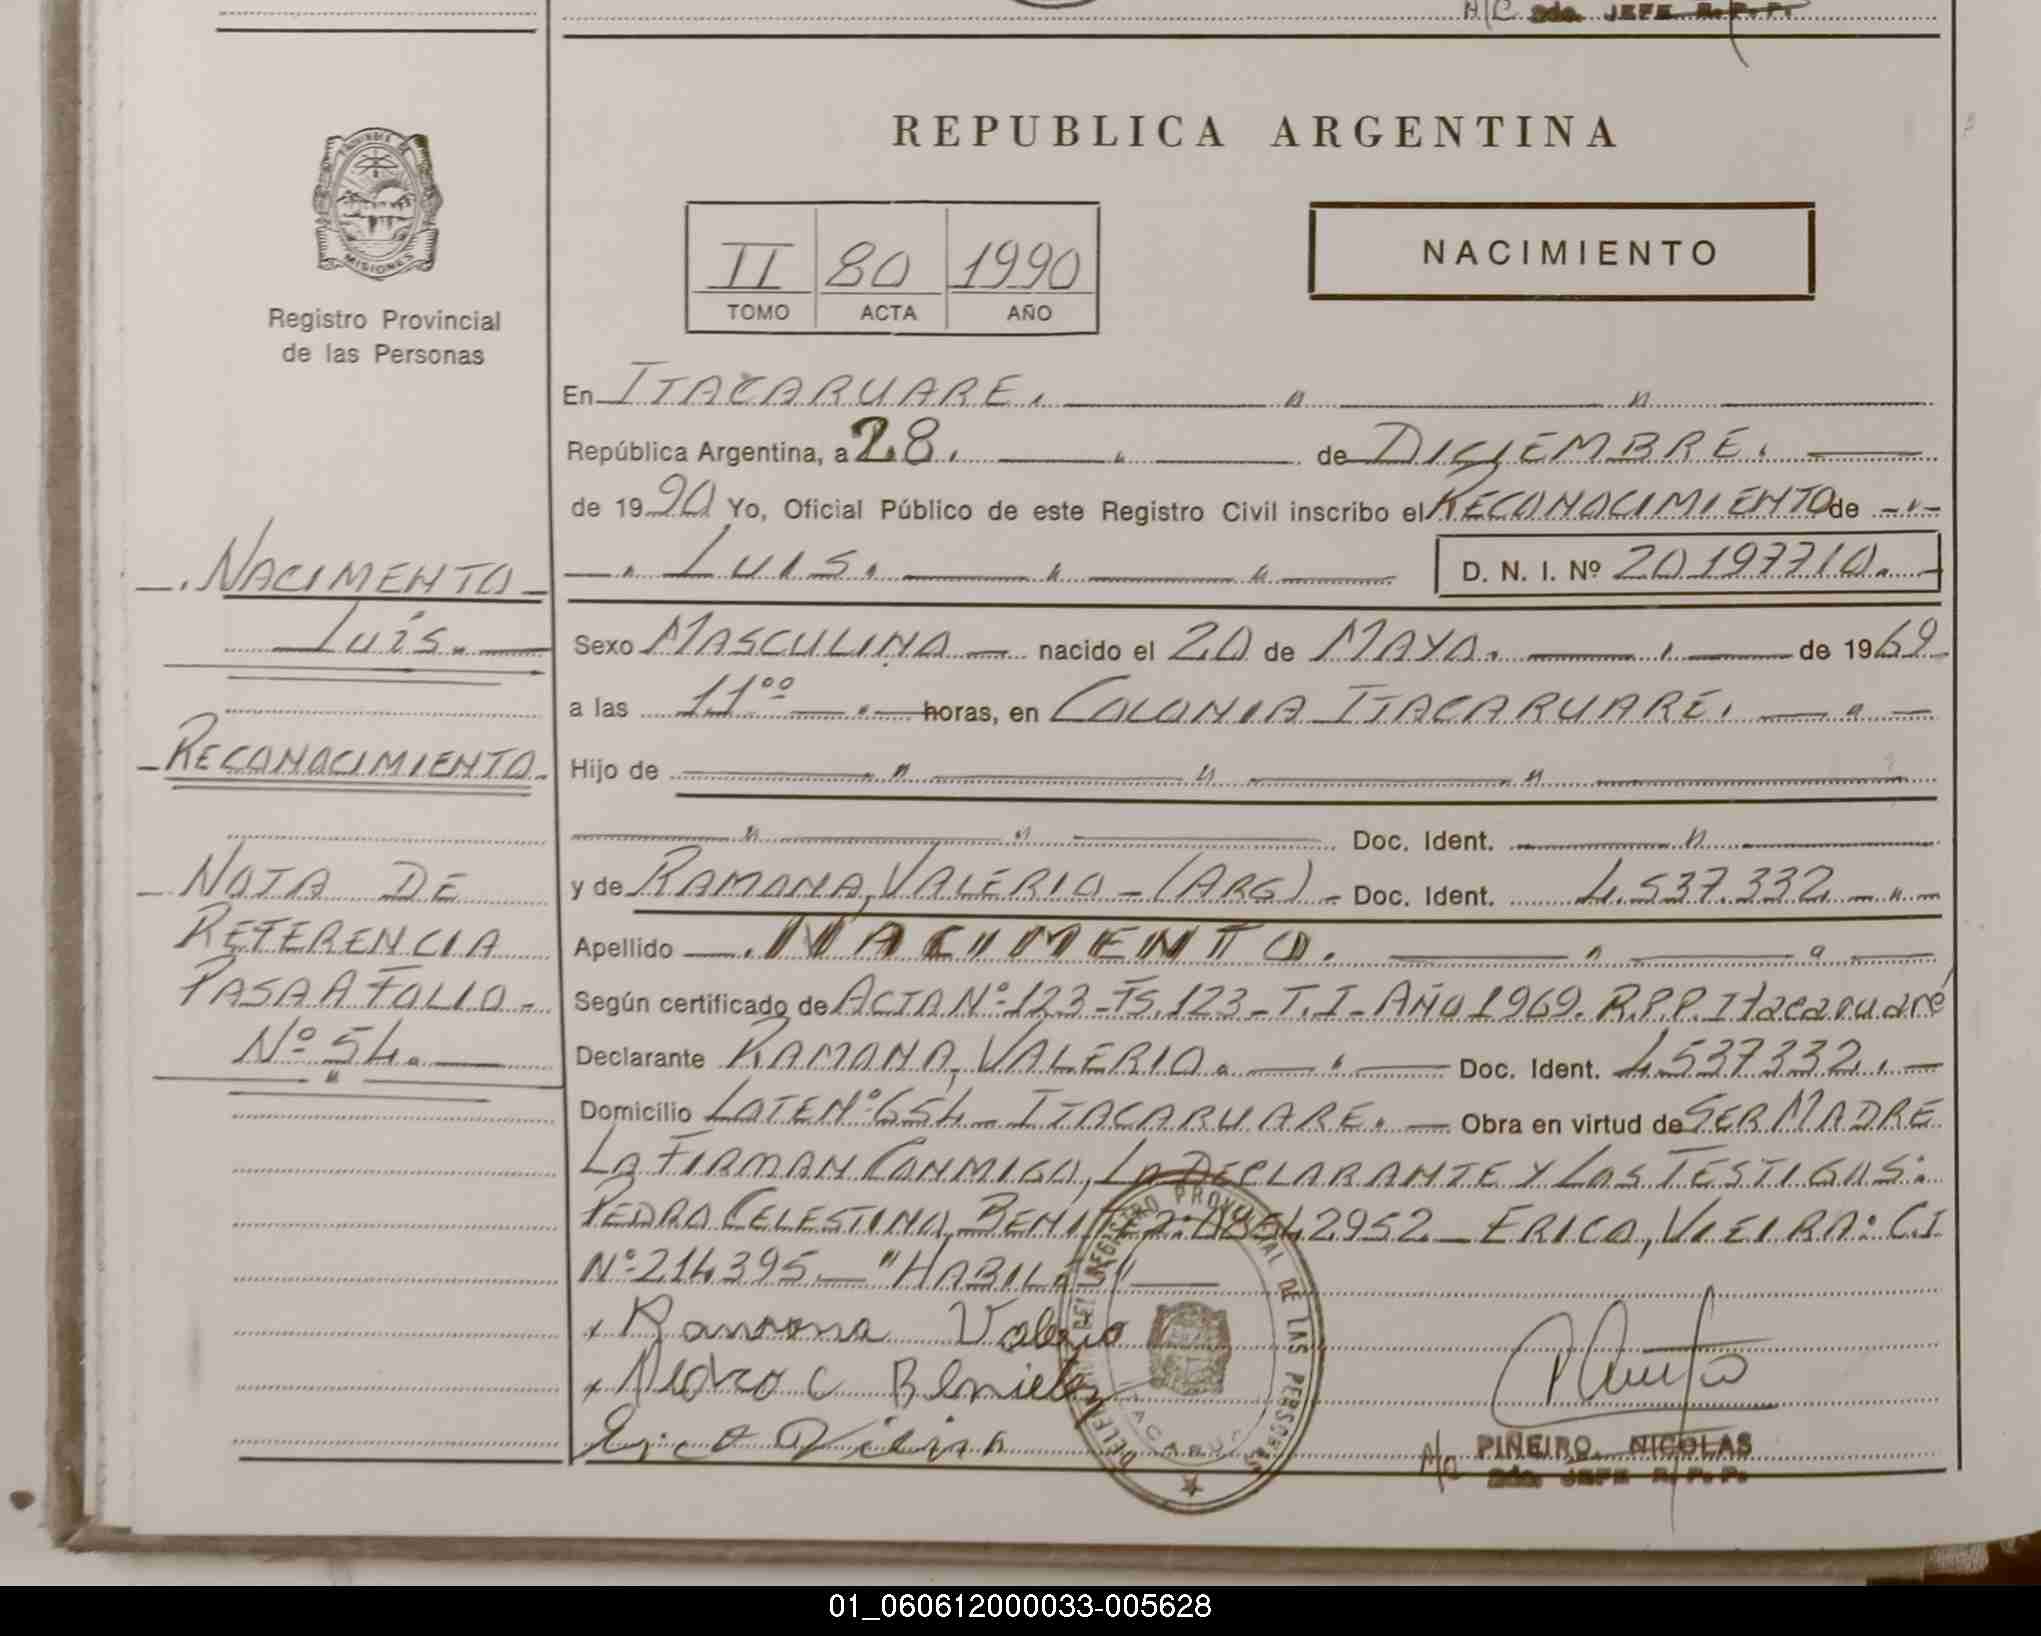 A/C 2do. JEFE R. P. P.
PROVINCIA DE
MISIONES
Registro Provincial
de las Personas
REPUBLICA ARGENTINA
II 80 1990
TOMO ACTA AÑO
NACIMIENTO
En ITACARUARE.
República Argentina, a 28. de DICIEMBRE.
de 1990 Yo, Oficial Público de este Registro Civil inscribo el RECONOCIMIENTO de
LUIS. D. N. I. Nº 20197710.
Sexo MASCULINO nacido el 20 de MAYO. de 1969
a las 11ºº horas, en COLONIA ITACARUARE.
Hijo de
Doc. Ident.
y de RAMONA, VALERIO - (ARG) - Doc. Ident. 4.537.332
Apellido NACIMENTO.
Según certificado de ACTA Nº 123 - Fs. 123 - T. I - AÑO 1969. R.P.P. Itacaruaré
Declarante RAMONA, VALERIO. Doc. Ident. 4537332.
Domicilio LOTE Nº 654 - ITACARUARE. Obra en virtud de SER MADRE
LA FIRMAN CONMIGO, LA DECLARANTE Y LOS TESTIGOS:
PEDRO CELESTINO, BENITEZ: 2952 - ERICO, VIEIRA: C.I
Nº 214395 - "HABILES"
x Ramona Valerio
x Pedro C Benitez
Erico Vieira
REGISTRO PROVINCIAL DE LAS PERSONAS
A/C PIÑEIRO, NICOLAS
2do. JEFE R. P. P.
NACIMENTO
Luis.
RECONOCIMIENTO.
NOTA DE
REFERENCIA
PASA A FOLIO -
Nº 54.
01_060612000033-005628